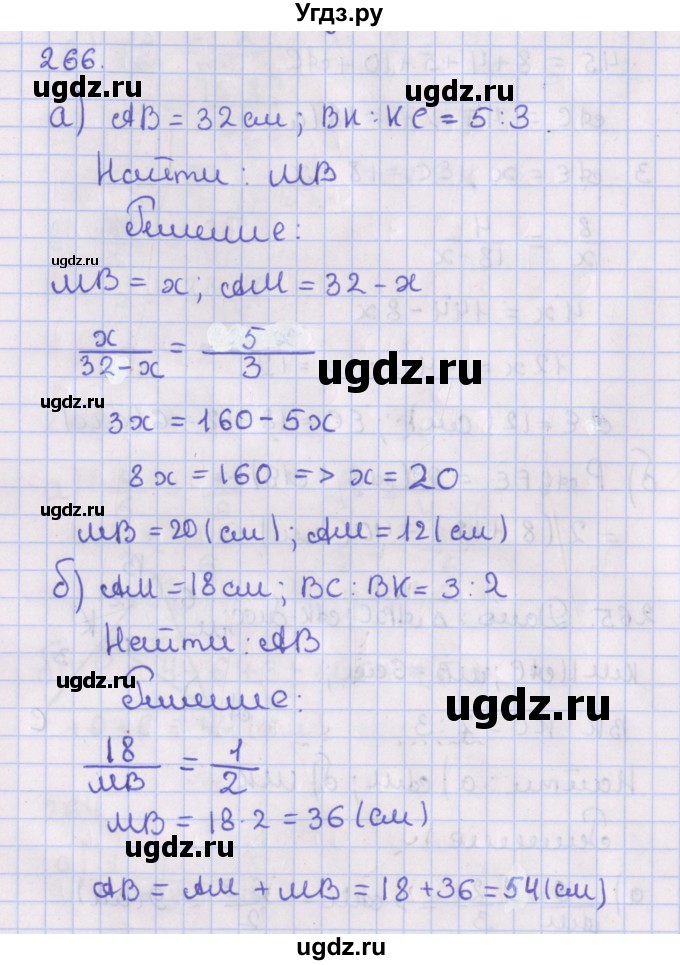 Угдз.ру
266.
а) AB = 32 см; BK : KC = 5 : 3.
Найти: MB
Решение:
MB = x; AM = 32 - x
x/(32-x) = 5/3
3x = 160 - 5x
8x = 160 => x = 20
MB = 20 (см); AM = 12 (см)
б) AM = 18 см; BC : BK = 3 : 2
Найти: AB
Решение:
18/MB = 1/2
MB = 18 · 2 = 36 (см)
AB = AM + MB = 18 + 36 = 54 (см)
ugdz.ru
ugdz.ru
ugdz.ru
ugdz.ru
ugdz.ru
ugdz.ru
ugdz.ru
ugdz.ru
ugdz.ru
ugdz.ru